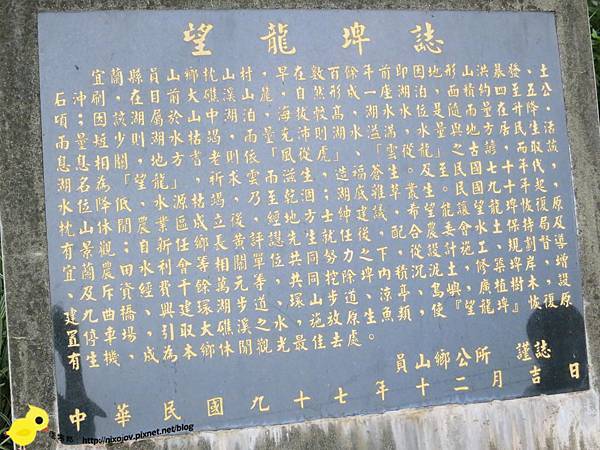 望龍埤誌
宜蘭縣員山鄉枕山村，早在數百餘年前即因地形山洪暴發、土
石沖刷，在目前大礁溪山麓，自然形成一座湖泊，面積約四、五公
頃；因該湖屬於山中湖泊，海拔較高，湖水水位是隨
雨量多少則湖水枯竭，雨量充沛則湖水溢滿，水量與地方居民生活
息息相關，地方耆老則依「風從虎」、「雲從龍」之古諺，而取
湖名為「望龍」，祈求雲雨滋生，造福蒼生。及至民國七十年代，
水位降低、水源枯竭，乃至乾涸；湖底雜草叢生。民國九十年起，
枕山休閒農業區成立後，經地方士紳建議，希望能讓望龍埤恢復原
有景觀；自新任鄉長黃詳評先生就任後，配合農委會水土保持局及
宜蘭農田水利會等相關單位共同努力之下，從設計施工、規劃督導
及斥資經費千餘萬元，共同挖除埤內沉積泥土、修築埤岸、增設
建九曲橋、興建環湖步道、環山步道、涼亭、廣植樹木，
置停車場，引取大礁溪之水，施放原生魚類，使『望龍埤』恢復原
有生機，成為本鄉休閒觀光最佳去處。
員山鄉公所 謹誌
中華民國九十七年十二月吉日
http://nixojov.pixnet.net/blog